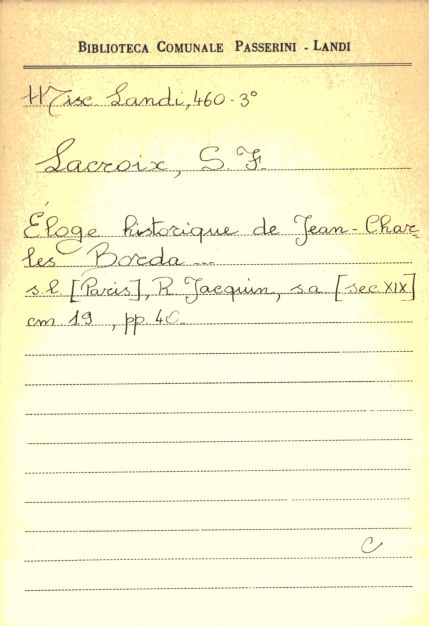 BIBLIOTECA COMUNALE PASSERINI - LANDI
Misc. Landi, 460-3°
Lacroix, S. F.
Éloge historique de Jean-Char=
les Borda ...
s.l. [Paris], R. Jacquin, s.a. [sec. XIX]
cm 19, pp. 40.
C